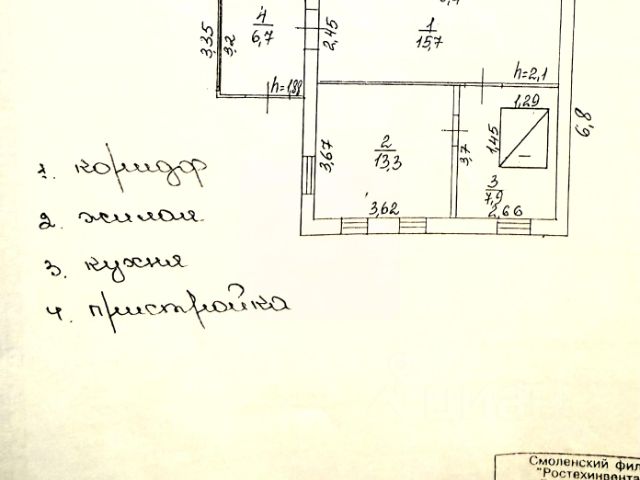 4
6,7
3,35
3,2
2,45
1
15,7
h=1,88
h=2,1
1,29
1,45
6,8
3,67
2
13,3
3,7
3
7,9
3,62
2,66
1. коридор
2. жилая
3. кухня
4. пристройка
Смоленский фил
"Ростехинвента